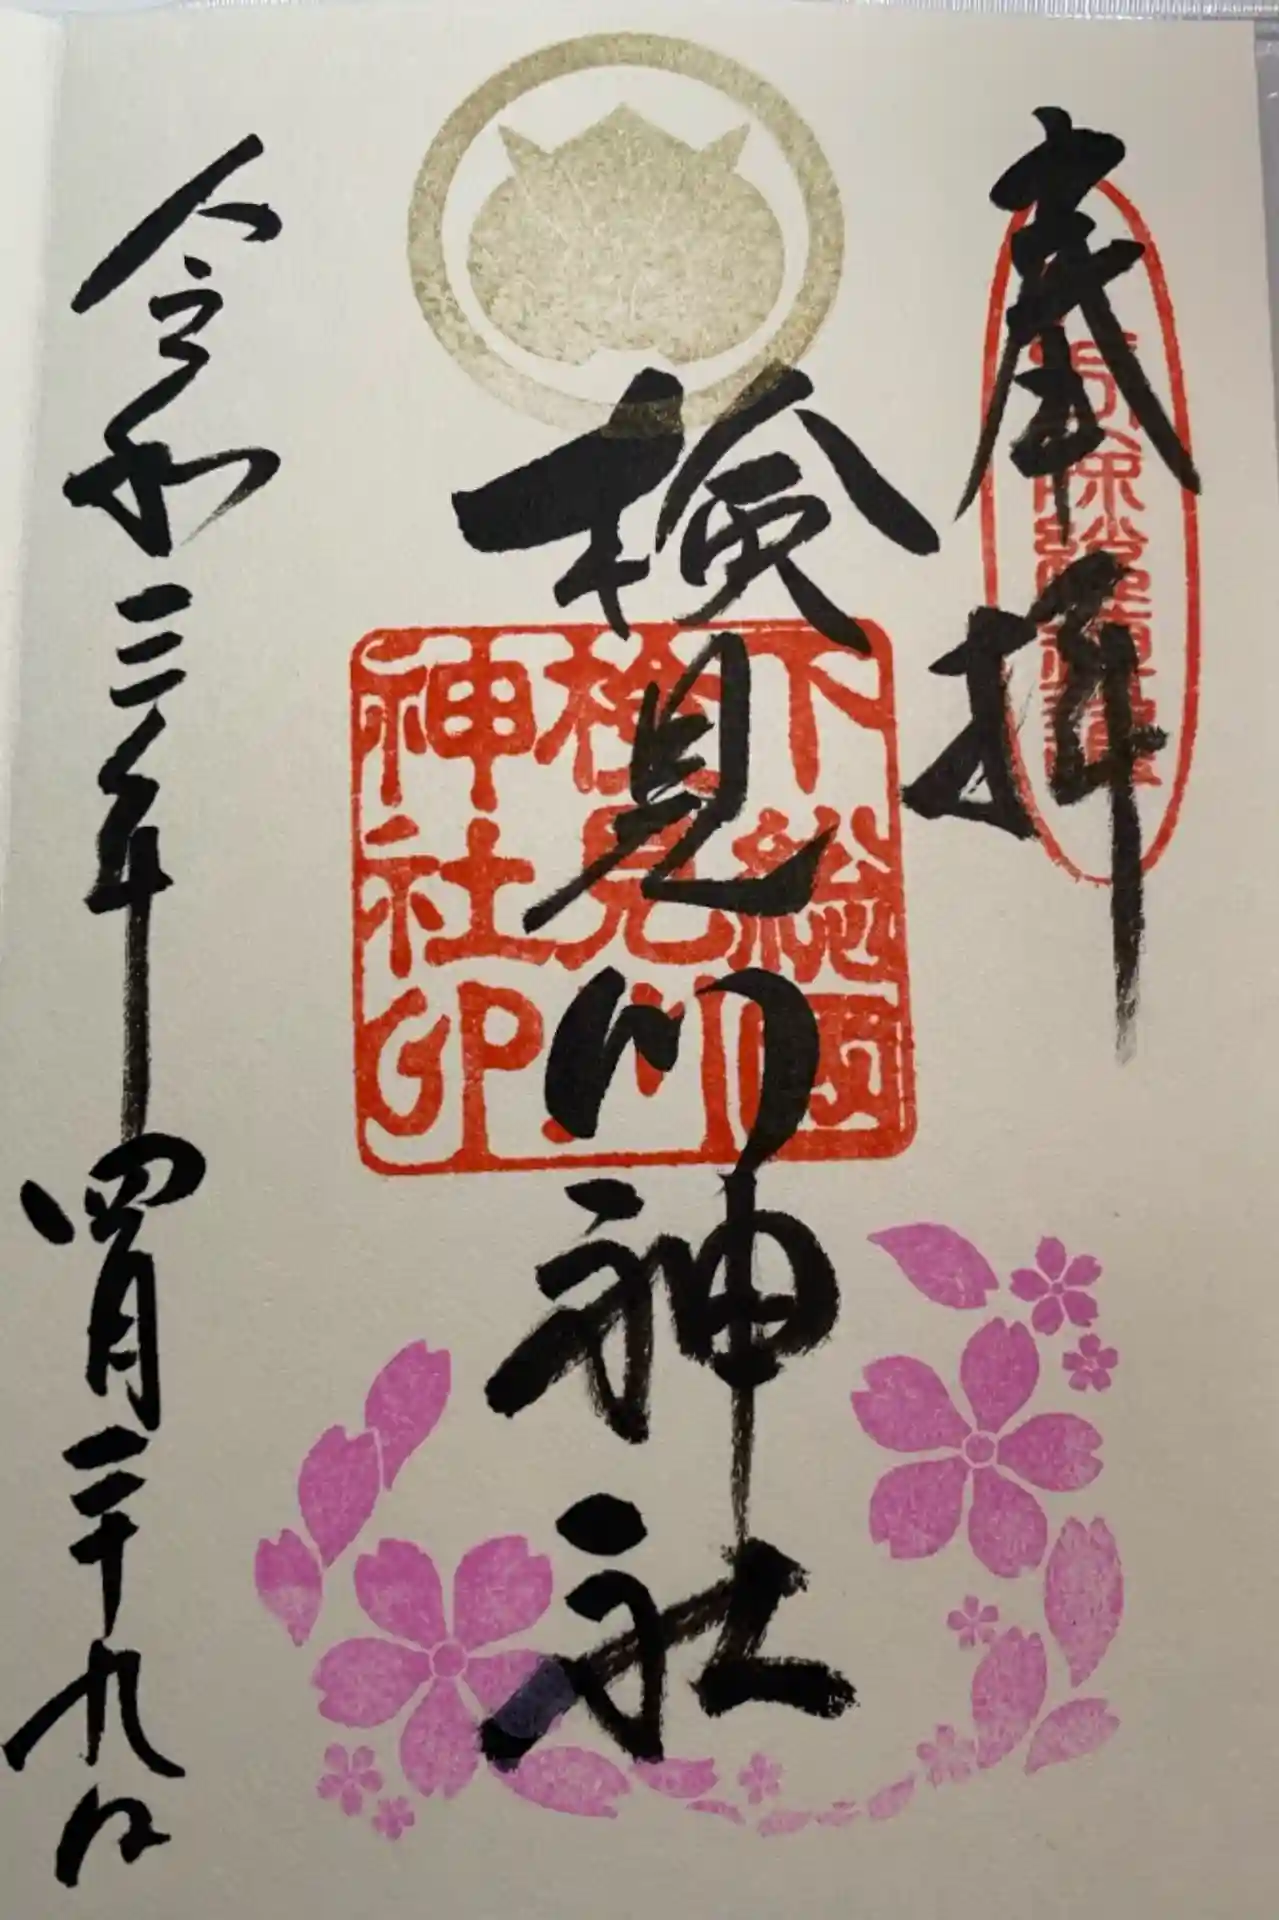 奉拝
検見川神社
下総國
検見川
神社印
令和三年四月二十九日